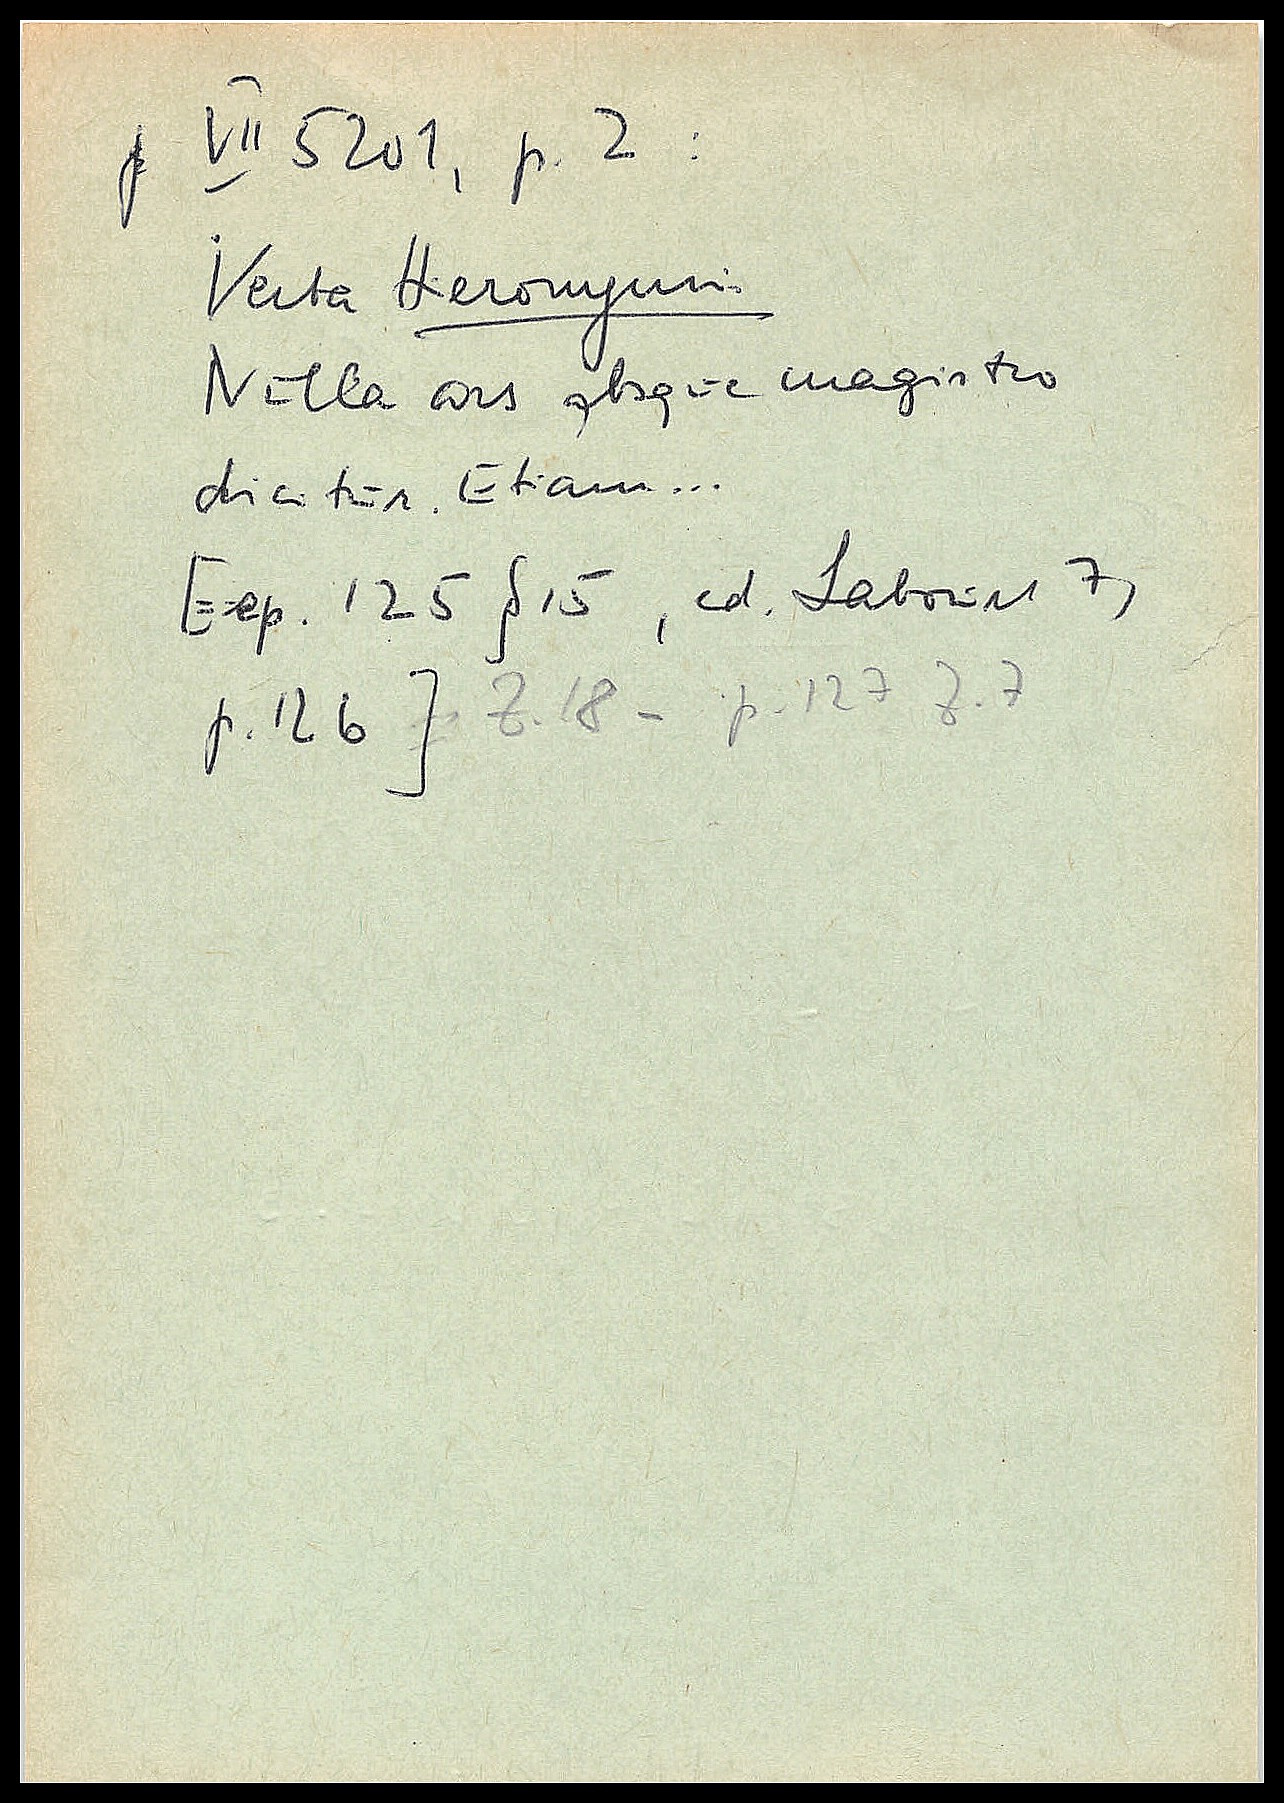 VII 5201, p. 2 :
Verba Hieronymi:
Nulla ars absque magistro
dicitur. Etiam...
[= ep. 125 § 15, ed. Labourt 7,
p. 126] Z. 18 - p. 127 Z. 7